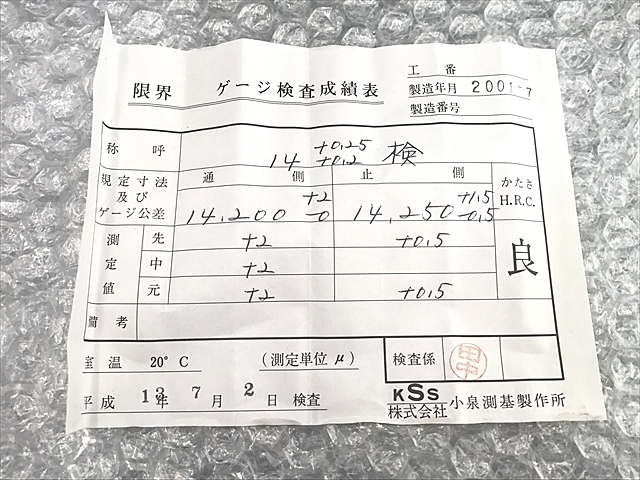 限界 ゲージ検査成績表
工番
製造年月 2001-7
製造番号
称呼 14 +0.25 +0.2 検
規定寸法及びゲージ公差 通側 止側 かたさ H.R.C.
14.200 +2 -0 14.250 +1.5 -0.5
測定値 先 +2 +0.5 良
中 +2
元 +2 +0.5
備考
室温 20°C (測定単位μ) 検査係 田中
平成 13年 7月 2日 検査
KSS
株式会社 小泉測基製作所